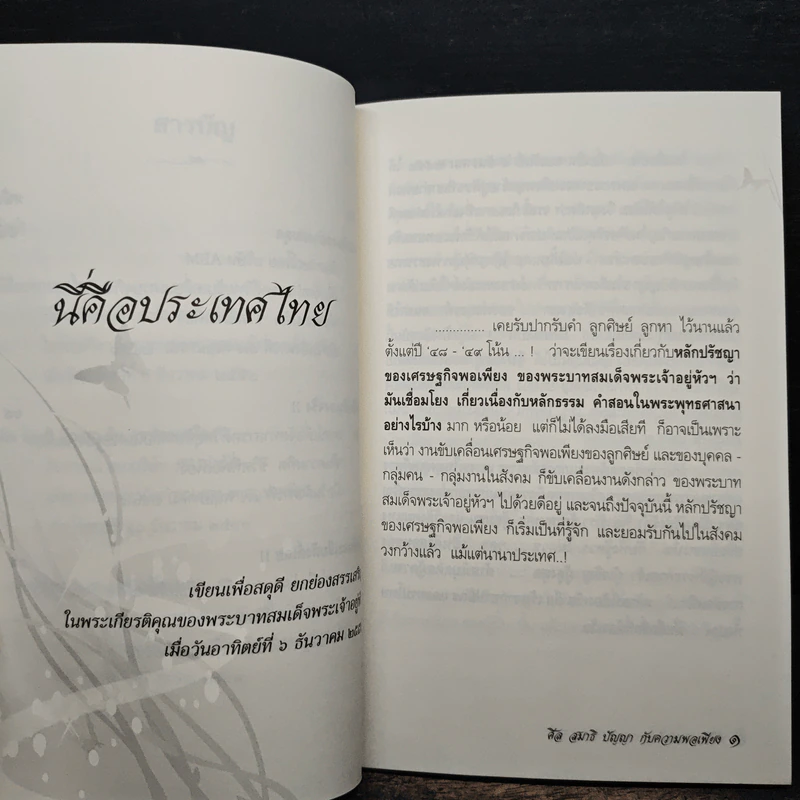 นี่คือประเทศไทย
เขียนเพื่อสดุดี ยกย่องสรรเสริญ
ในพระเกียรติคุณของพระบาทสมเด็จพระเจ้าอยู่หัว
เมื่อวันอาทิตย์ที่ ๖ ธันวาคม
.............. เคยรับปากรับคำ ลูกศิษย์ ลูกหา ไว้นานแล้ว
ตั้งแต่ปี '๔๘ - '๔๙ โน้น ... ! ว่าจะเขียนเรื่องเกี่ยวกับหลักปรัชญา
ของเศรษฐกิจพอเพียง ของพระบาทสมเด็จพระเจ้าอยู่หัวฯ ว่า
มันเชื่อมโยง เกี่ยวเนื่องกับหลักธรรม คำสอนในพระพุทธศาสนา
อย่างไรบ้าง มาก หรือน้อย แต่ก็ไม่ได้ลงมือเสียที ก็อาจเป็นเพราะ
เห็นว่า งานขับเคลื่อนเศรษฐกิจพอเพียงของลูกศิษย์ และของบุคคล -
กลุ่มคน - กลุ่มงานในสังคม ก็ขับเคลื่อนงานดังกล่าว ของพระบาท
สมเด็จพระเจ้าอยู่หัวฯ ไปด้วยดีอยู่ และจนถึงปัจจุบันนี้ หลักปรัชญา
ของเศรษฐกิจพอเพียง ก็เริ่มเป็นที่รู้จัก และยอมรับกันไปในสังคม
วงกว้างแล้ว แม้แต่นานาประเทศ..!
ศีล สมาธิ ปัญญา กับความพอเพียง ๑